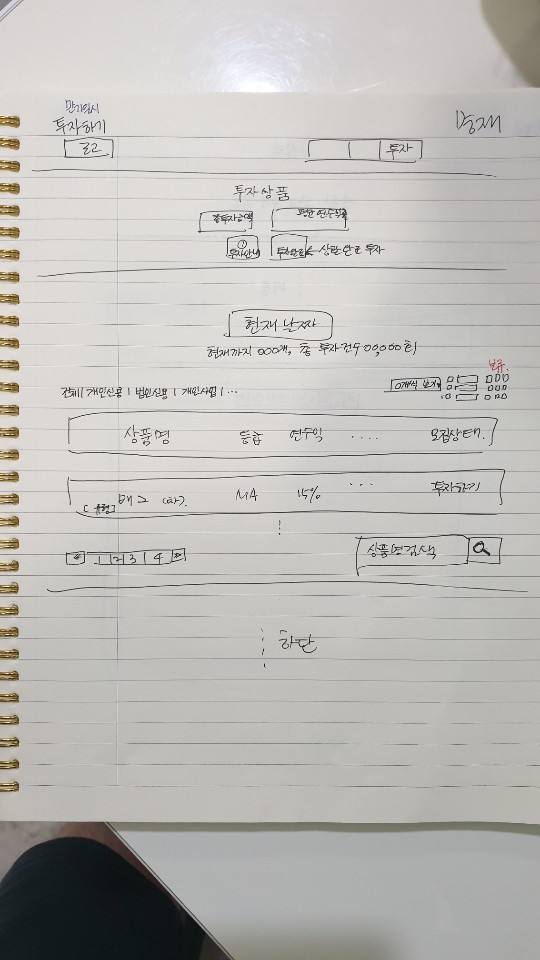 투자하기
로고
투자
투자상품
총투자금액 평균 연수익률
① 투자안내 ← 상환 완료 투자
현재 날짜
현재까지 000개, 총 투자건수 00,000회
전체 | 개인신용 | 법인신용 | 개인사업 | ...
0개씩 보기 보류.
상품명 등급 연수익 .... 모집상태.
[유형] 태그 MA 15% ... 투자하기
« 1 2 3 4 »
상품명검색
하단